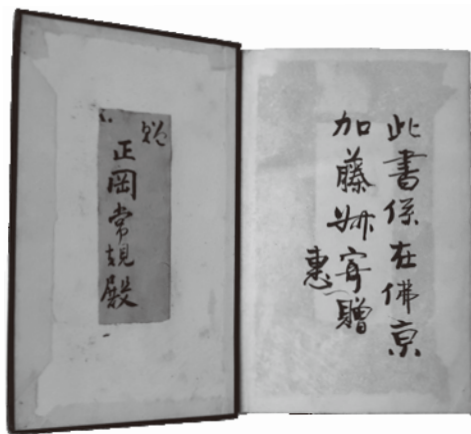 此書係在佛京
加藤寄贈
惠
正岡常規殿